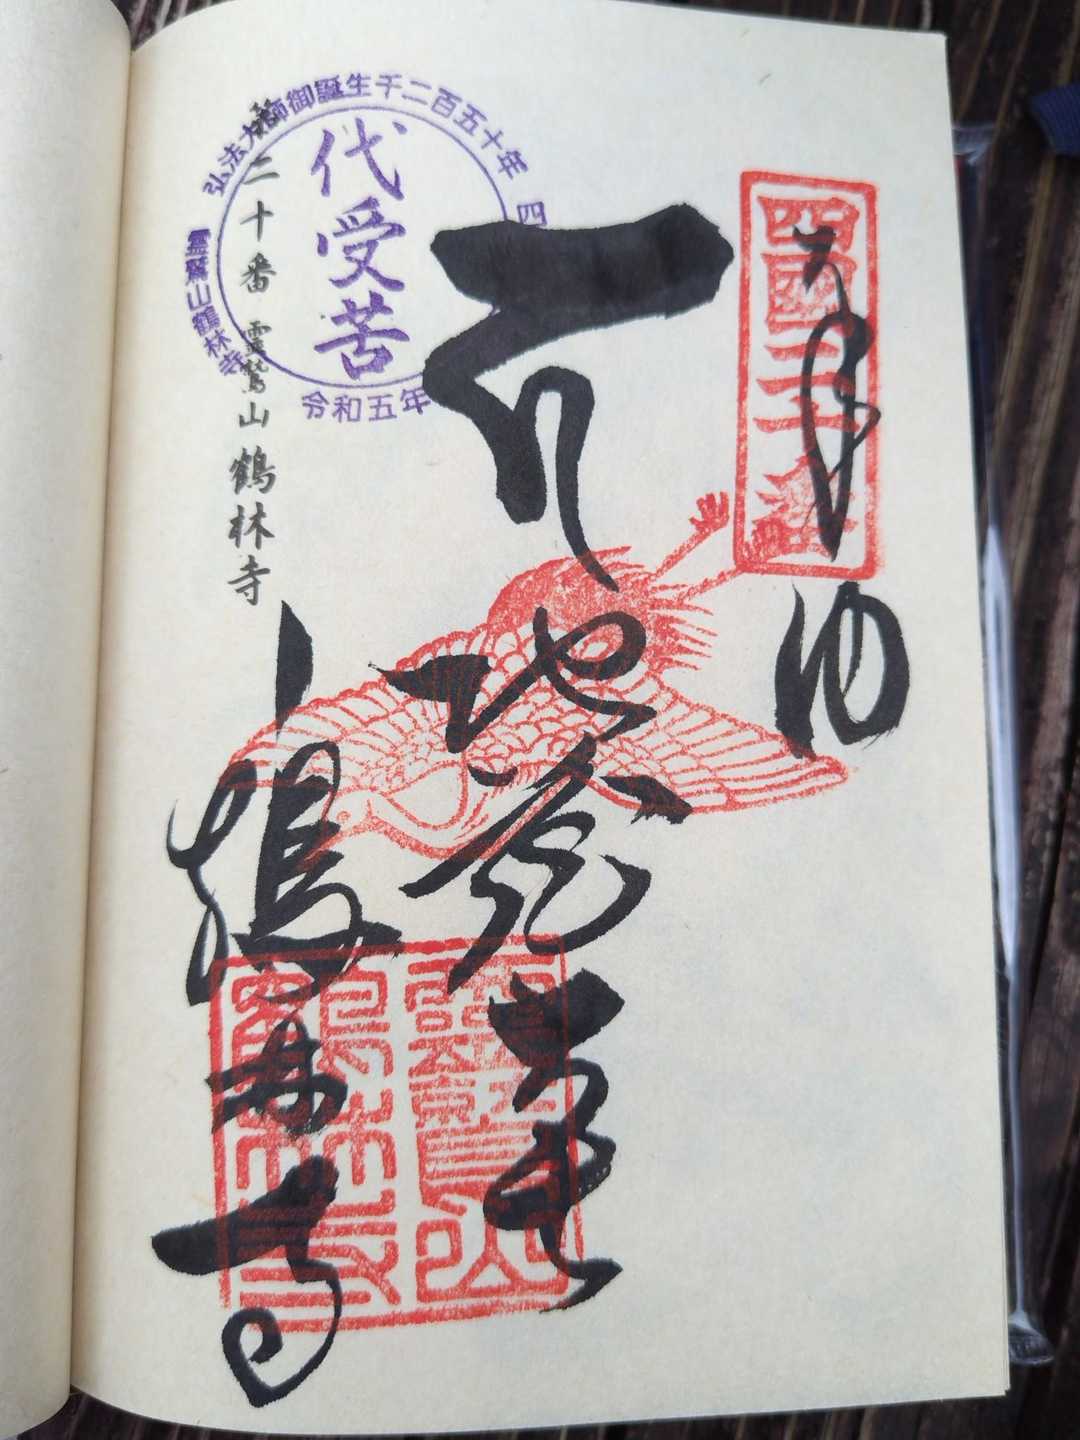 四國二十番
奉
地蔵大士
鶴林寺
靈鷲山
鶴林寺
弘法大師御誕生千二百五十年 四
代受苦
靈鷲山鶴林寺
令和五年
第二十番 靈鷲山 鶴林寺